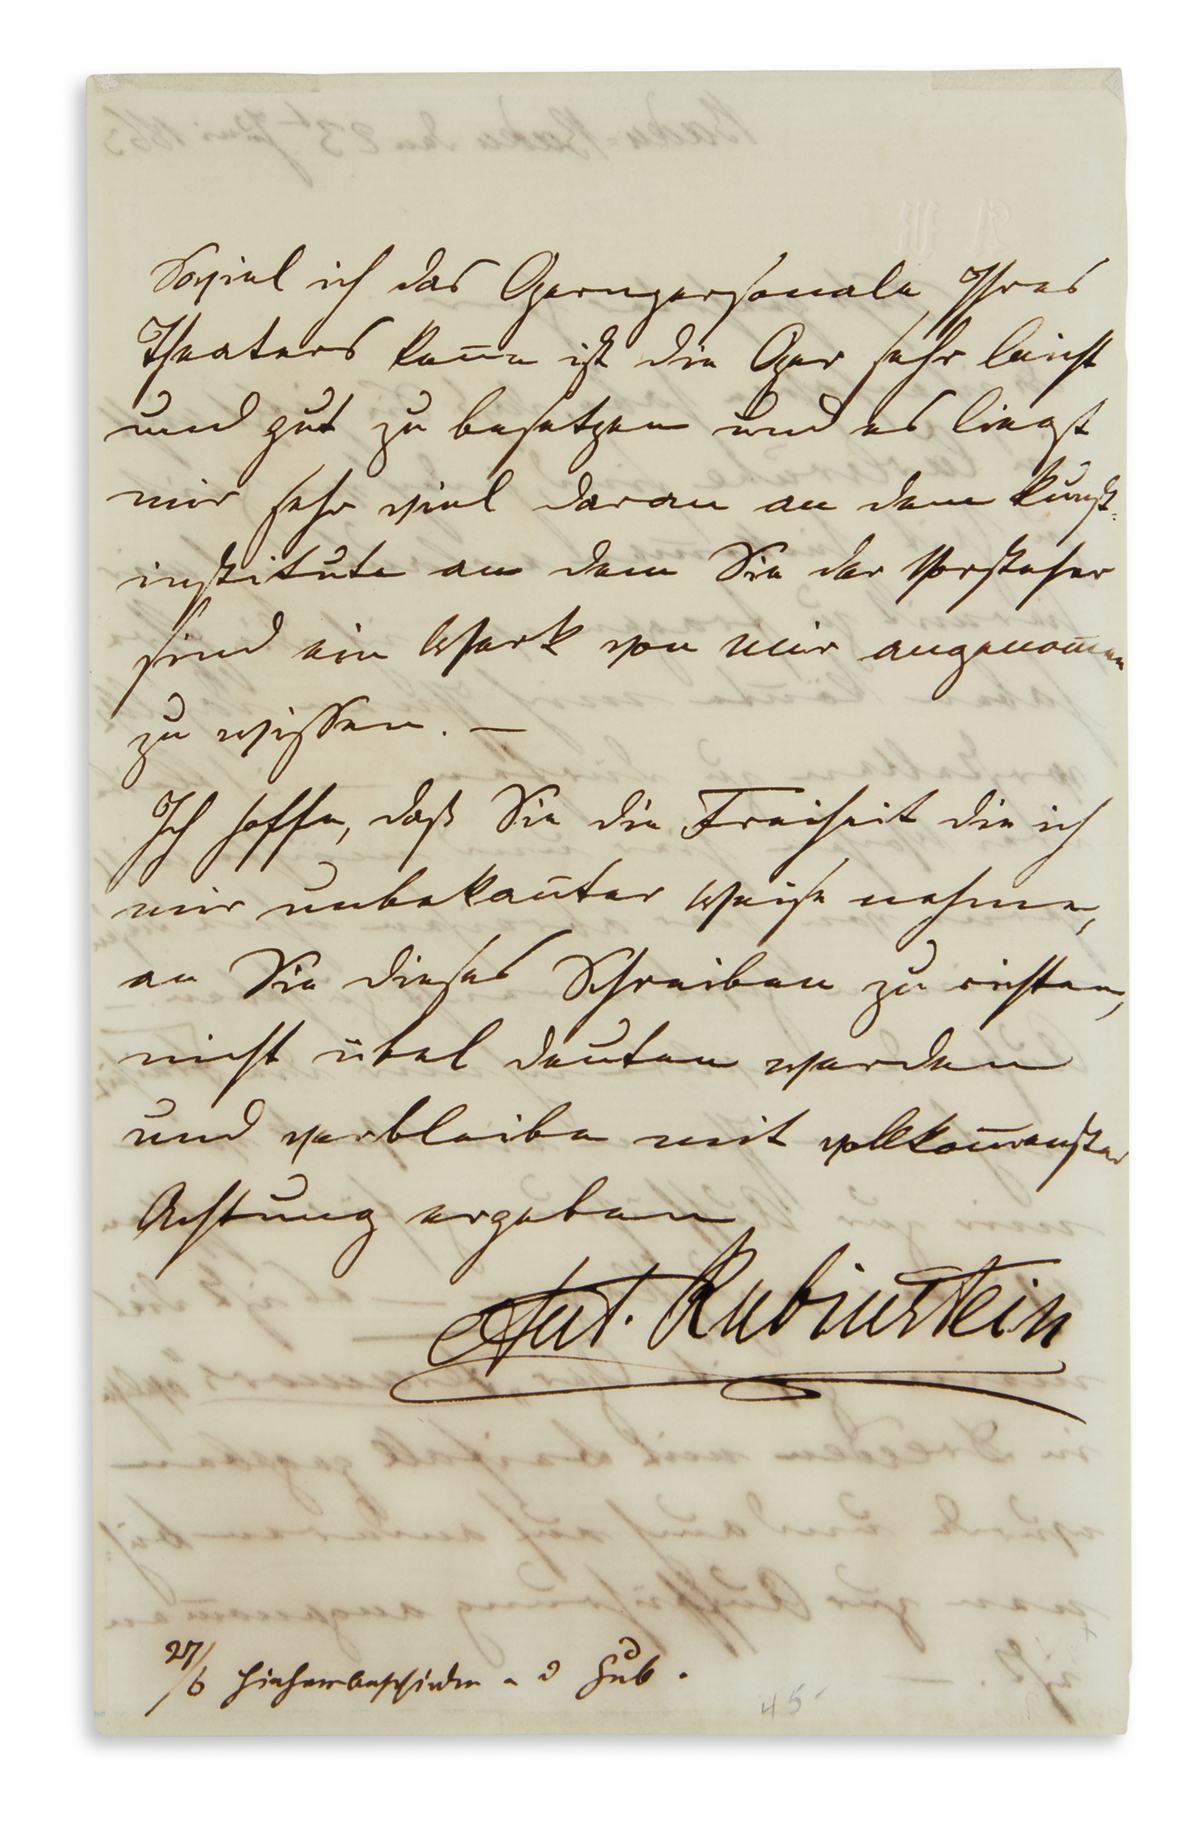 Soviel ich das Opernpersonale Ihres
Theaters kenne ist die Oper sehr leicht
und gut zu besetzen und es liegt
mir sehr viel daran an dem Kunst-
institute an dem Sie der Vorsteher
sind ein Werk von mir angenom̄en
zu wissen. —
Ich hoffe, daß Sie die Freiheit die ich
mir unbekan̄ter Weise nehme,
an Sie dieses Schreiben zu richten,
nicht übel deuten werden
und verbleibe mit vollkom̄enster
Achtung ergeben
Ant. Rubinstein
27/6
45-